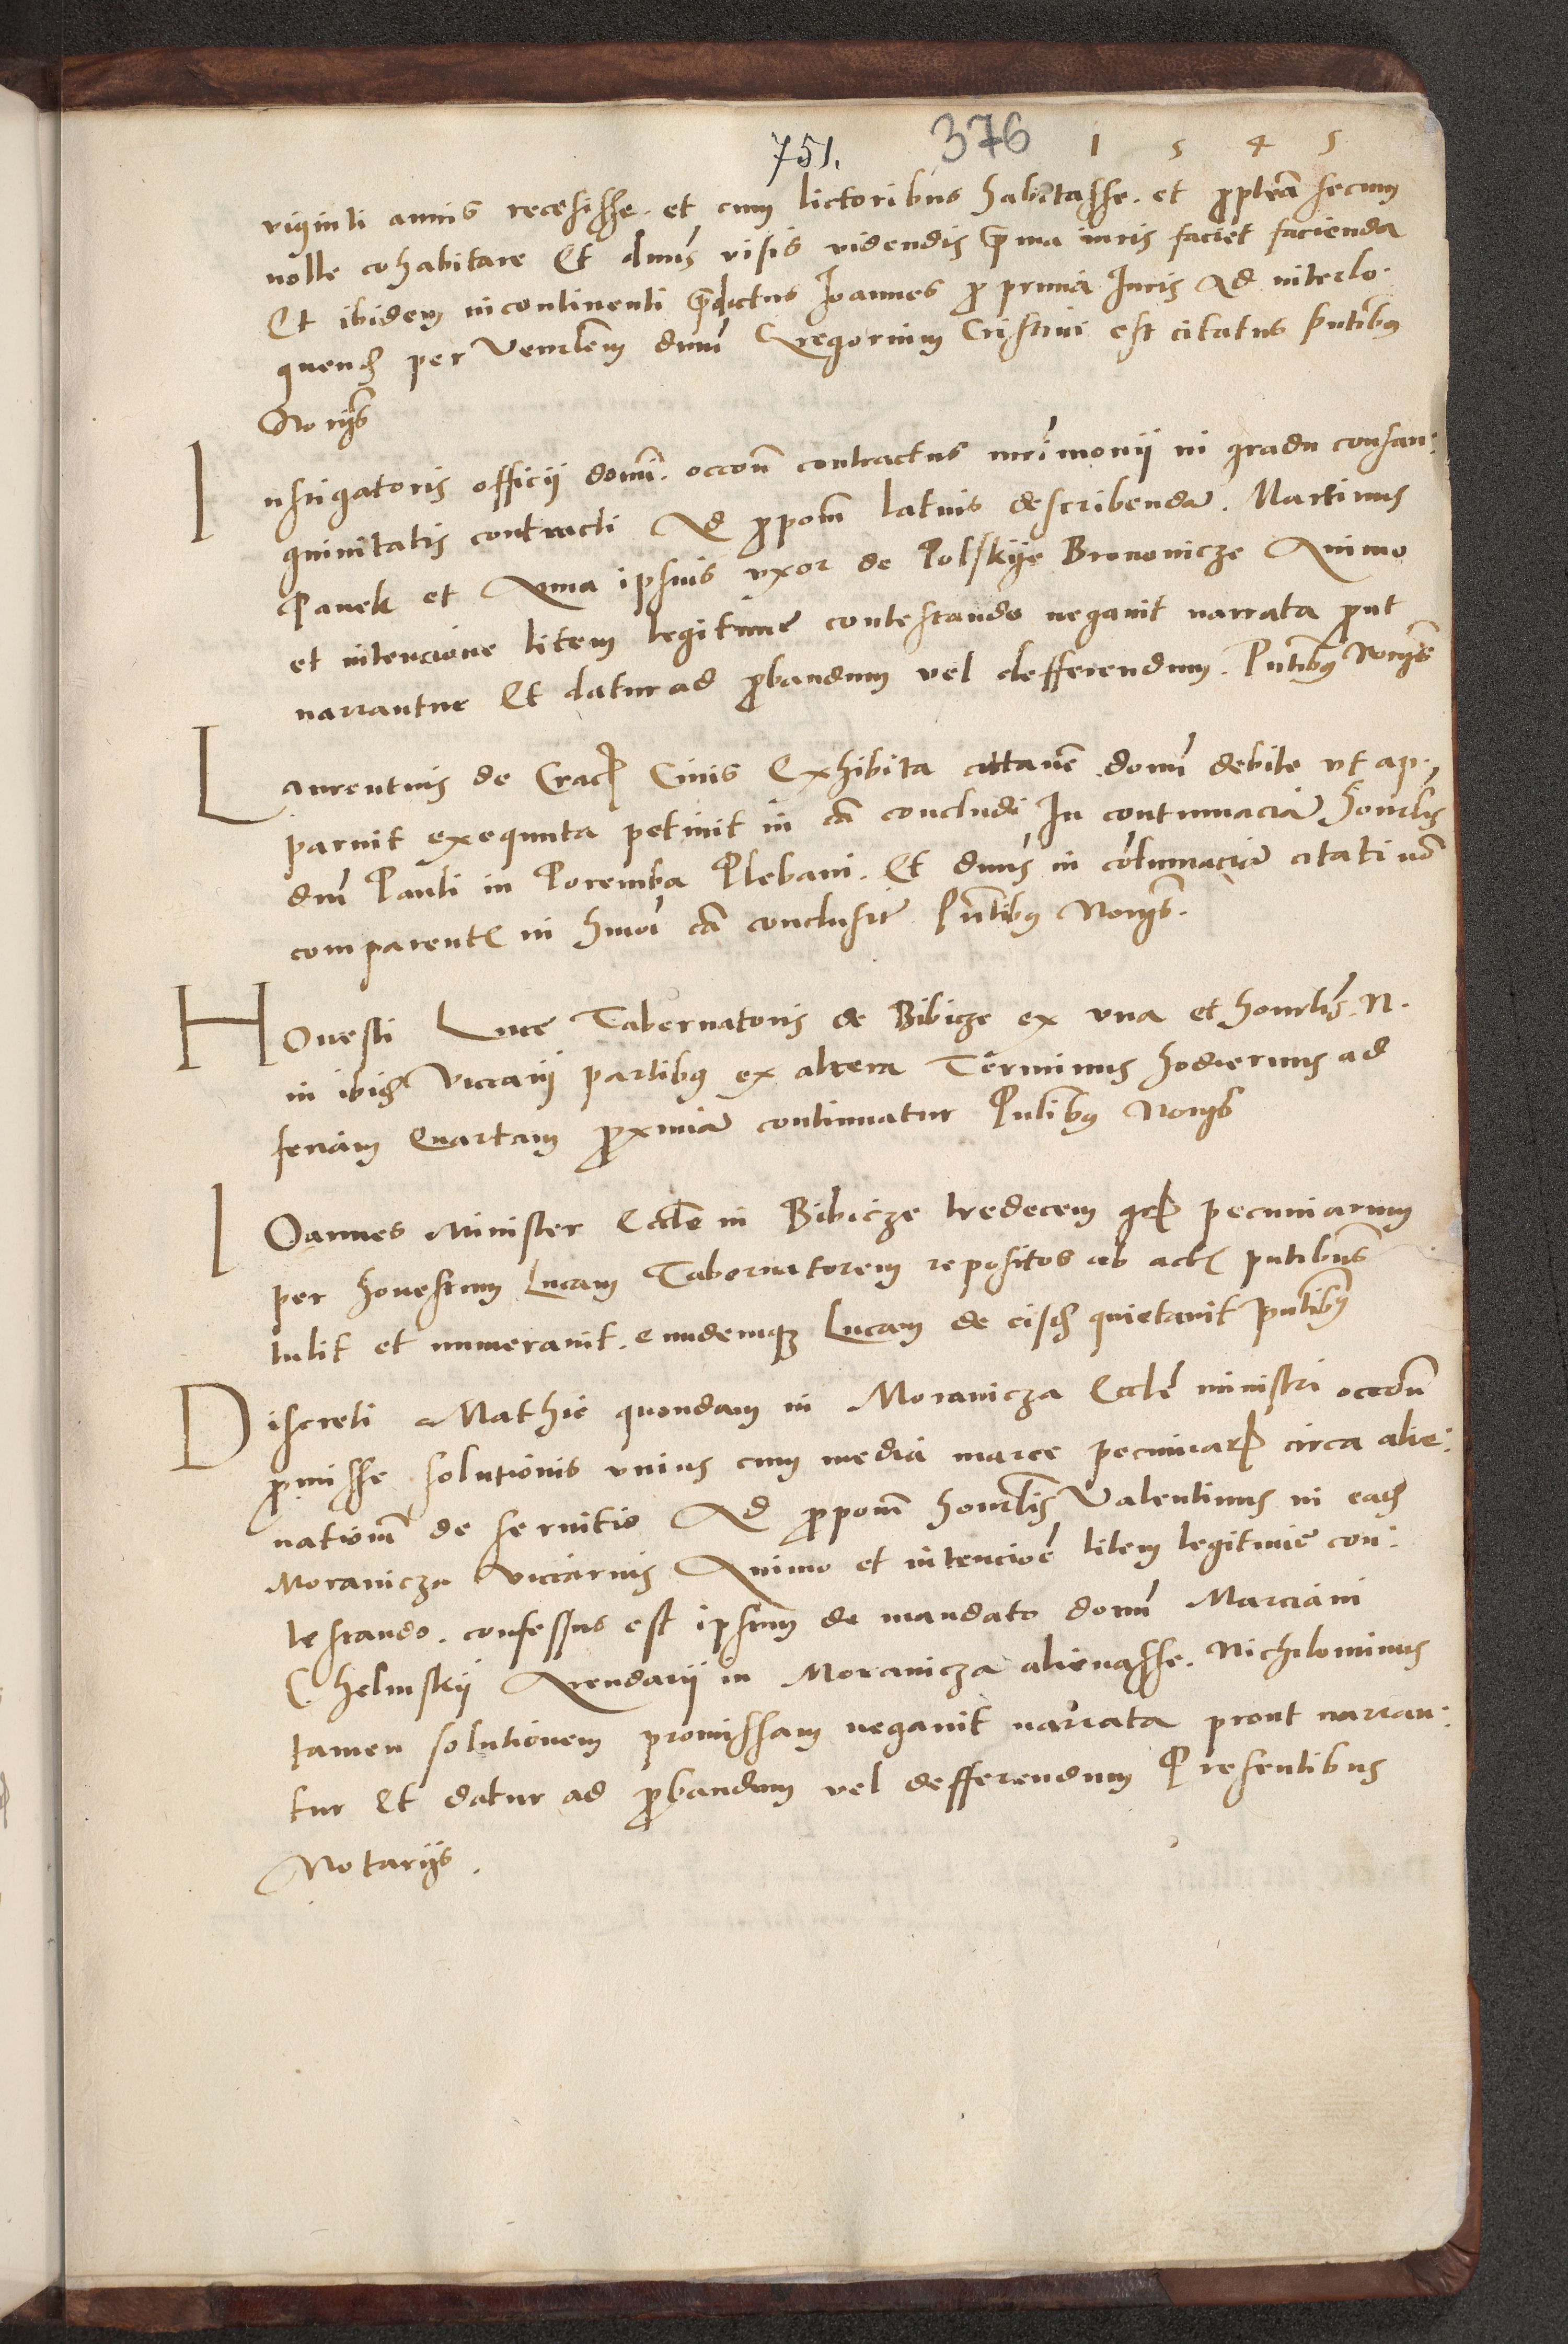 751. 376 1 5 4 5
viginti annis recesisse. et cum lictoribus habitasse. et ꝓpterea secum
nolle cohabitare Et dnus visis videndis p̃ma iuris faciet facienda
Et ibidem incontinenti p̃dictus Ioannes ꝓ prima Iuris Ad interlo-
quend per Venrlem dnum Gregorium Cristini est citatus pñtibus
Norijs
Instigatoris officij domi. occoñe contractus mr̃imonij in gradu consan:
guinitatis contracti Ad ꝓpoem latius describendã. Martinus
Panek et Anna ipsius vxor de Polskije Bronouicze Animo
et intencione litem legitime contestando negauit narrata ꝓut
narrantur Et datur ad ꝓbandum vel defferendum. Pñtibus Norijs
Laurentius de Crac Ciuis Exhibita citacione domi debite vt ap-
paruit exequuta petiuit in cã concludi In contumaciã honrlis
dni Pauli in Poremba Plebani. Et dnus in cõtumaciã citati nõ
comparent in hmõi cã conclusit Pñtibus Norijs.
Honesti Luce Tabernatoris de Bibicze ex vna et honrlis N.
in ibid Vicarij partibus ex altera Terminus hodiernus ad
feriam Quartam ꝓximã continuatur Pñtibus Norijs
Ioannes Minister Eccle in Bibicze tredecem gr pecuniarum
per honestum Lucam Tabernatorem repositos ab act pñtibus
tulit et numerauit. eundemque Lucam de eisd quietauit pñtibus
Discreti Mathie quondam in Morawicza Eccle ministri occoñe
ꝓmisse solutionis vnius cum media marce pecuniar circa alie:
nationem de seruitio Ad ꝓpoem honrlis Valentinus in ead
Morawicza Vicarius Animo et intencioe litem legitime con:
testando. confessus est ipsum de mandato domi Marciani
Chelmskij Arendarij in Morawicza alienasse. Nichilominus
tamen solutionem promissam negauit narrata prout narran:
tur Et datur ad ꝓbandum vel defferendum Presentibus
Notarijs.